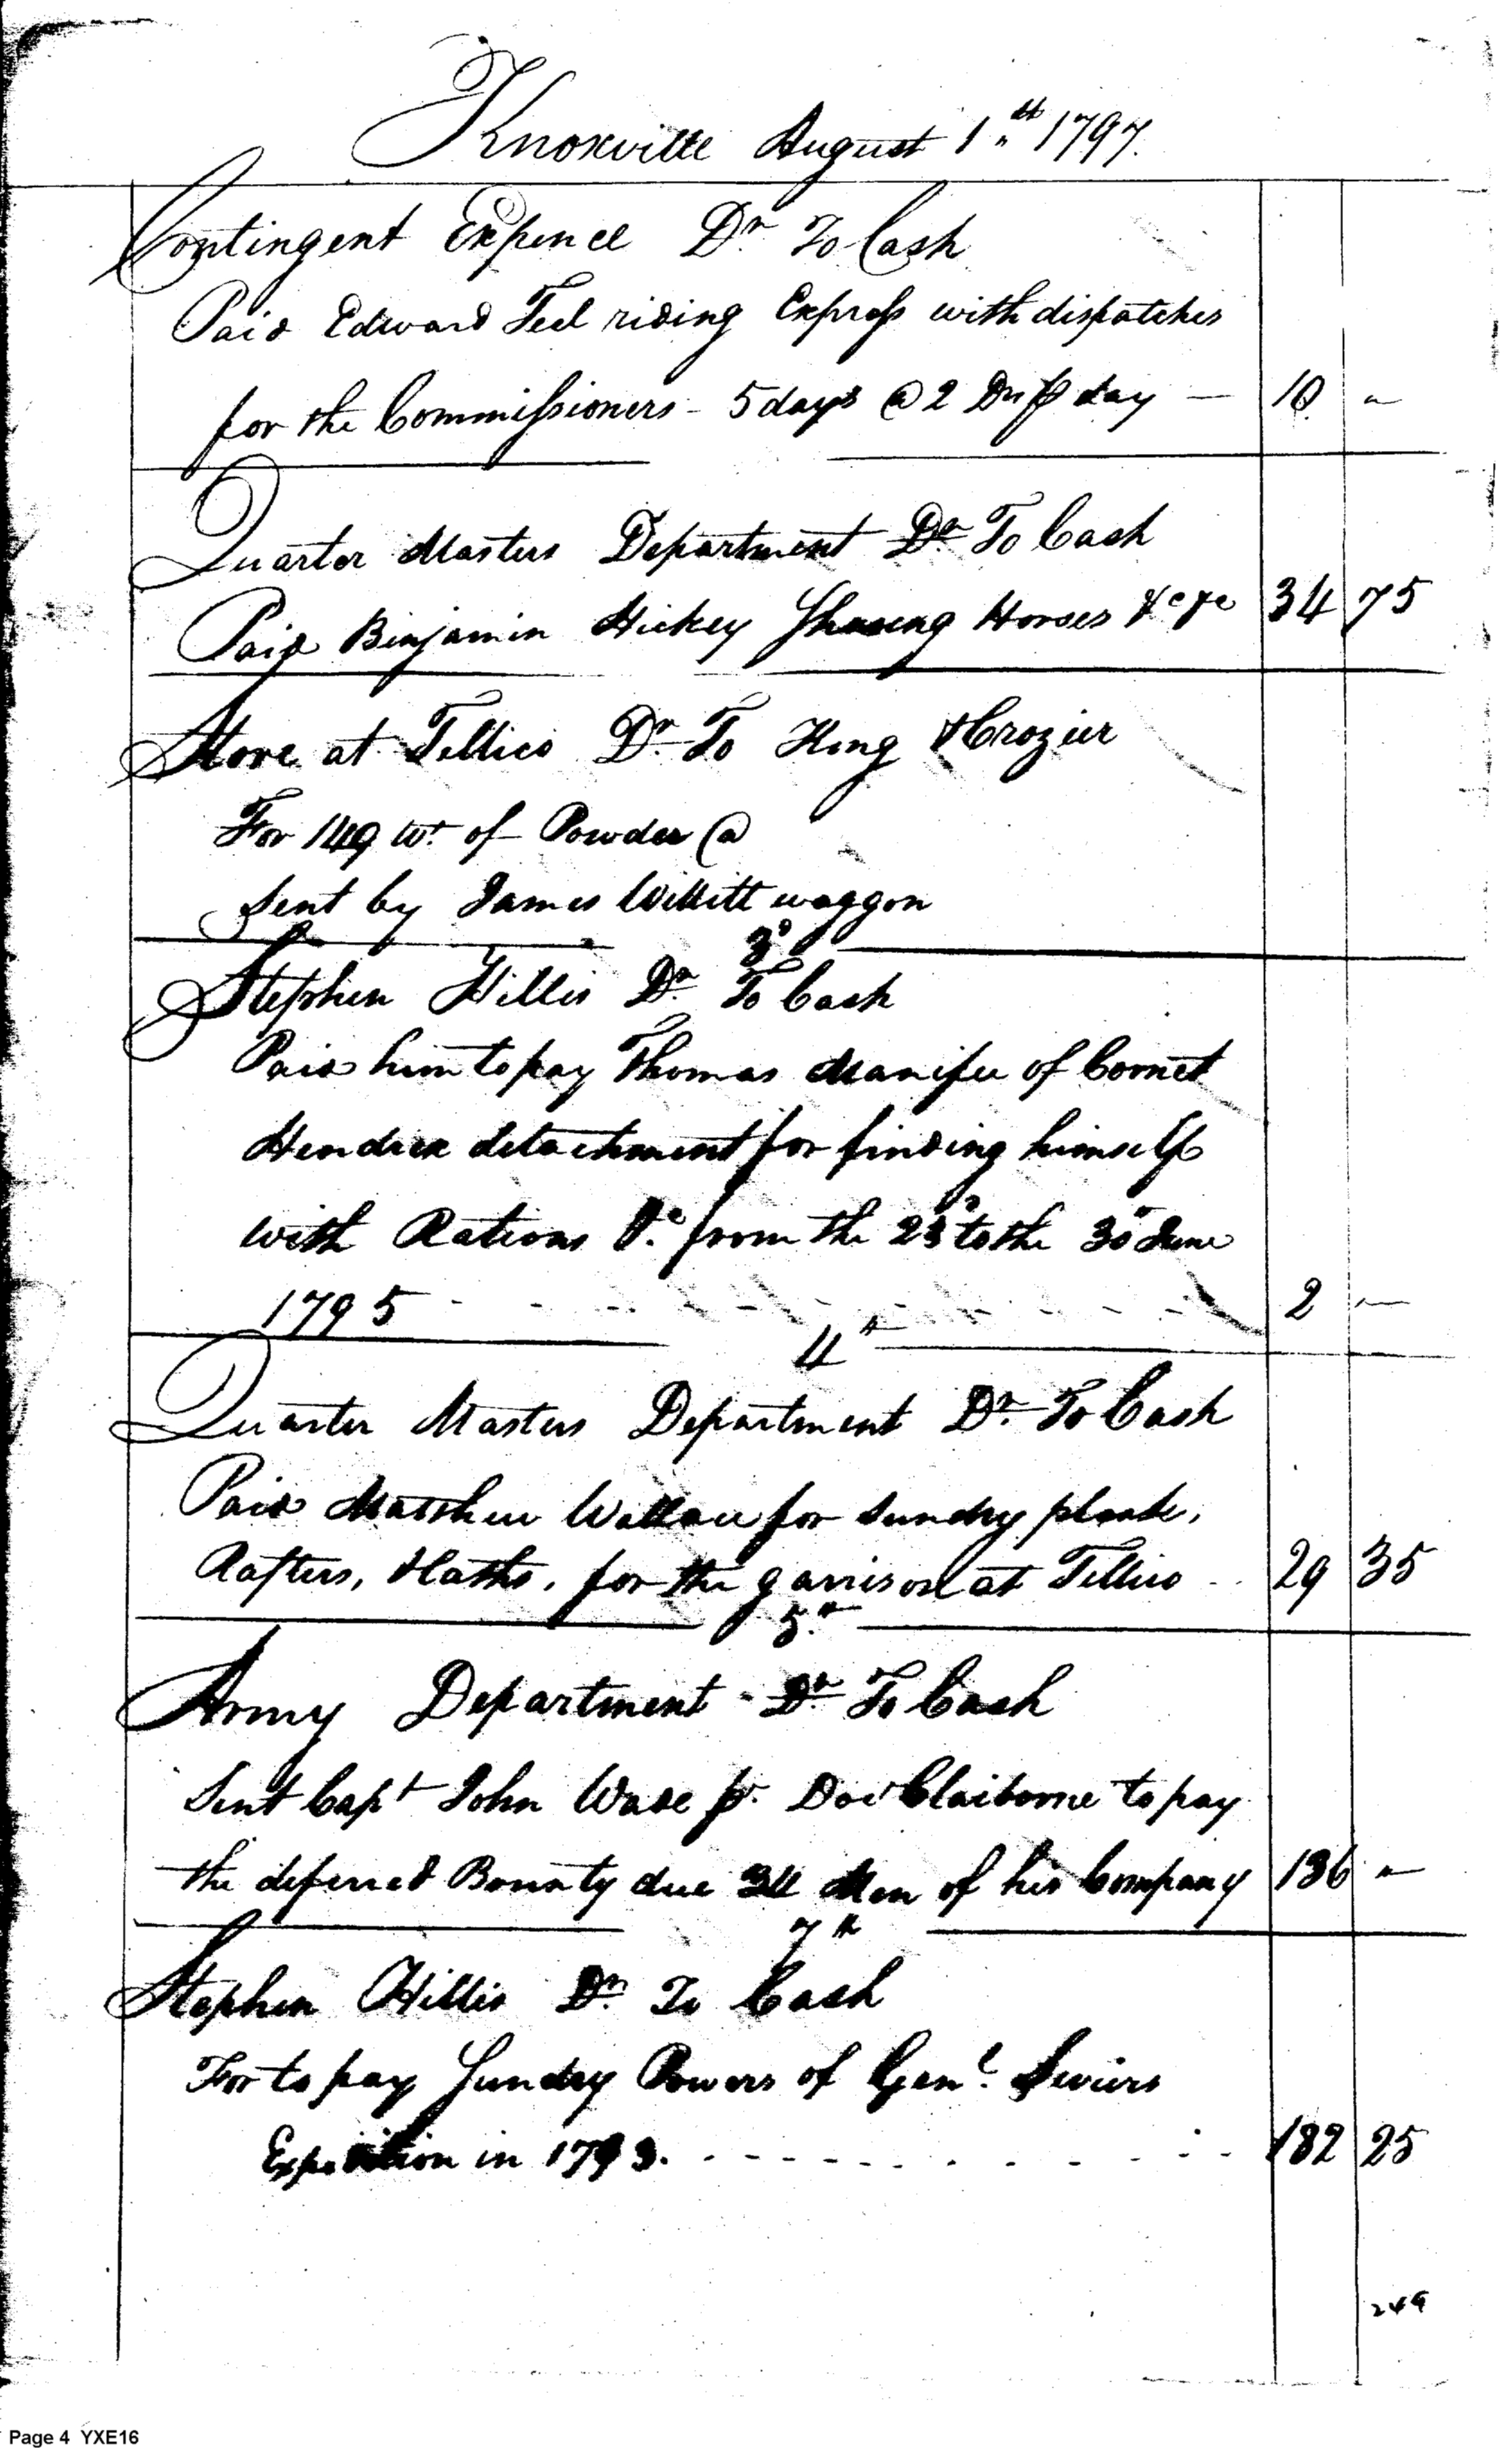 Knoxville August 1st 1797.
Contingent Expence Dr To Cash
Paid Edward Teel riding Express with dispatches
for the Commissioners - 5 days @ 2 Drs p day — 10 "
Quarter Masters Department Dr To Cash
Paid Binjamin Hickey Shoeing Horses &c &c 34 75
Store at Tellico Dr To King & Crozier
For 149 wt of Powder @
Sent by James Willitt waggon
3d
Stephen Hillis Dr To Cash
Paid him to pay Thomas Manifee of Cornet
Hendrix detachment for finding himself
with Rations &c from the 23d to the 30th June
1795 - - - - - - - - - - 2 —
4th
Quarter Masters Department Dr To Cash
Paid Matthew Wallace for sundry plank,
Rafters, & laths, for the garrison at Tellico - - 29 35
5th
Army Department - Dr To Cash
Sent Capt John Wade pr. Doct Claiborne to pay
the deferred Bounty due 34 Men of his Company 136 "
7th
Stephen Hillis Dr To Cash
For to pay Sundry Powers of Genl. Seviers
Expedition in 1793. - - - - - - - - - - 182 25
249
Page 4 YXE16